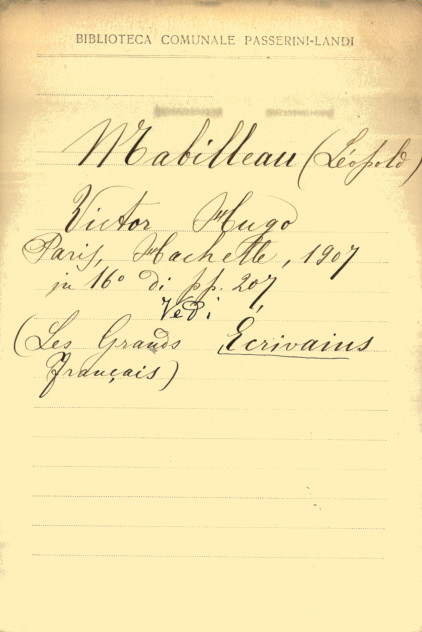 BIBLIOTECA COMUNALE PASSERINI-LANDI
Mabilleau (Léopold)
Victor Hugo
Paris, Hachette, 1907
in 16° di pp. 207,
Vedi
(Les Grands Écrivains
français)